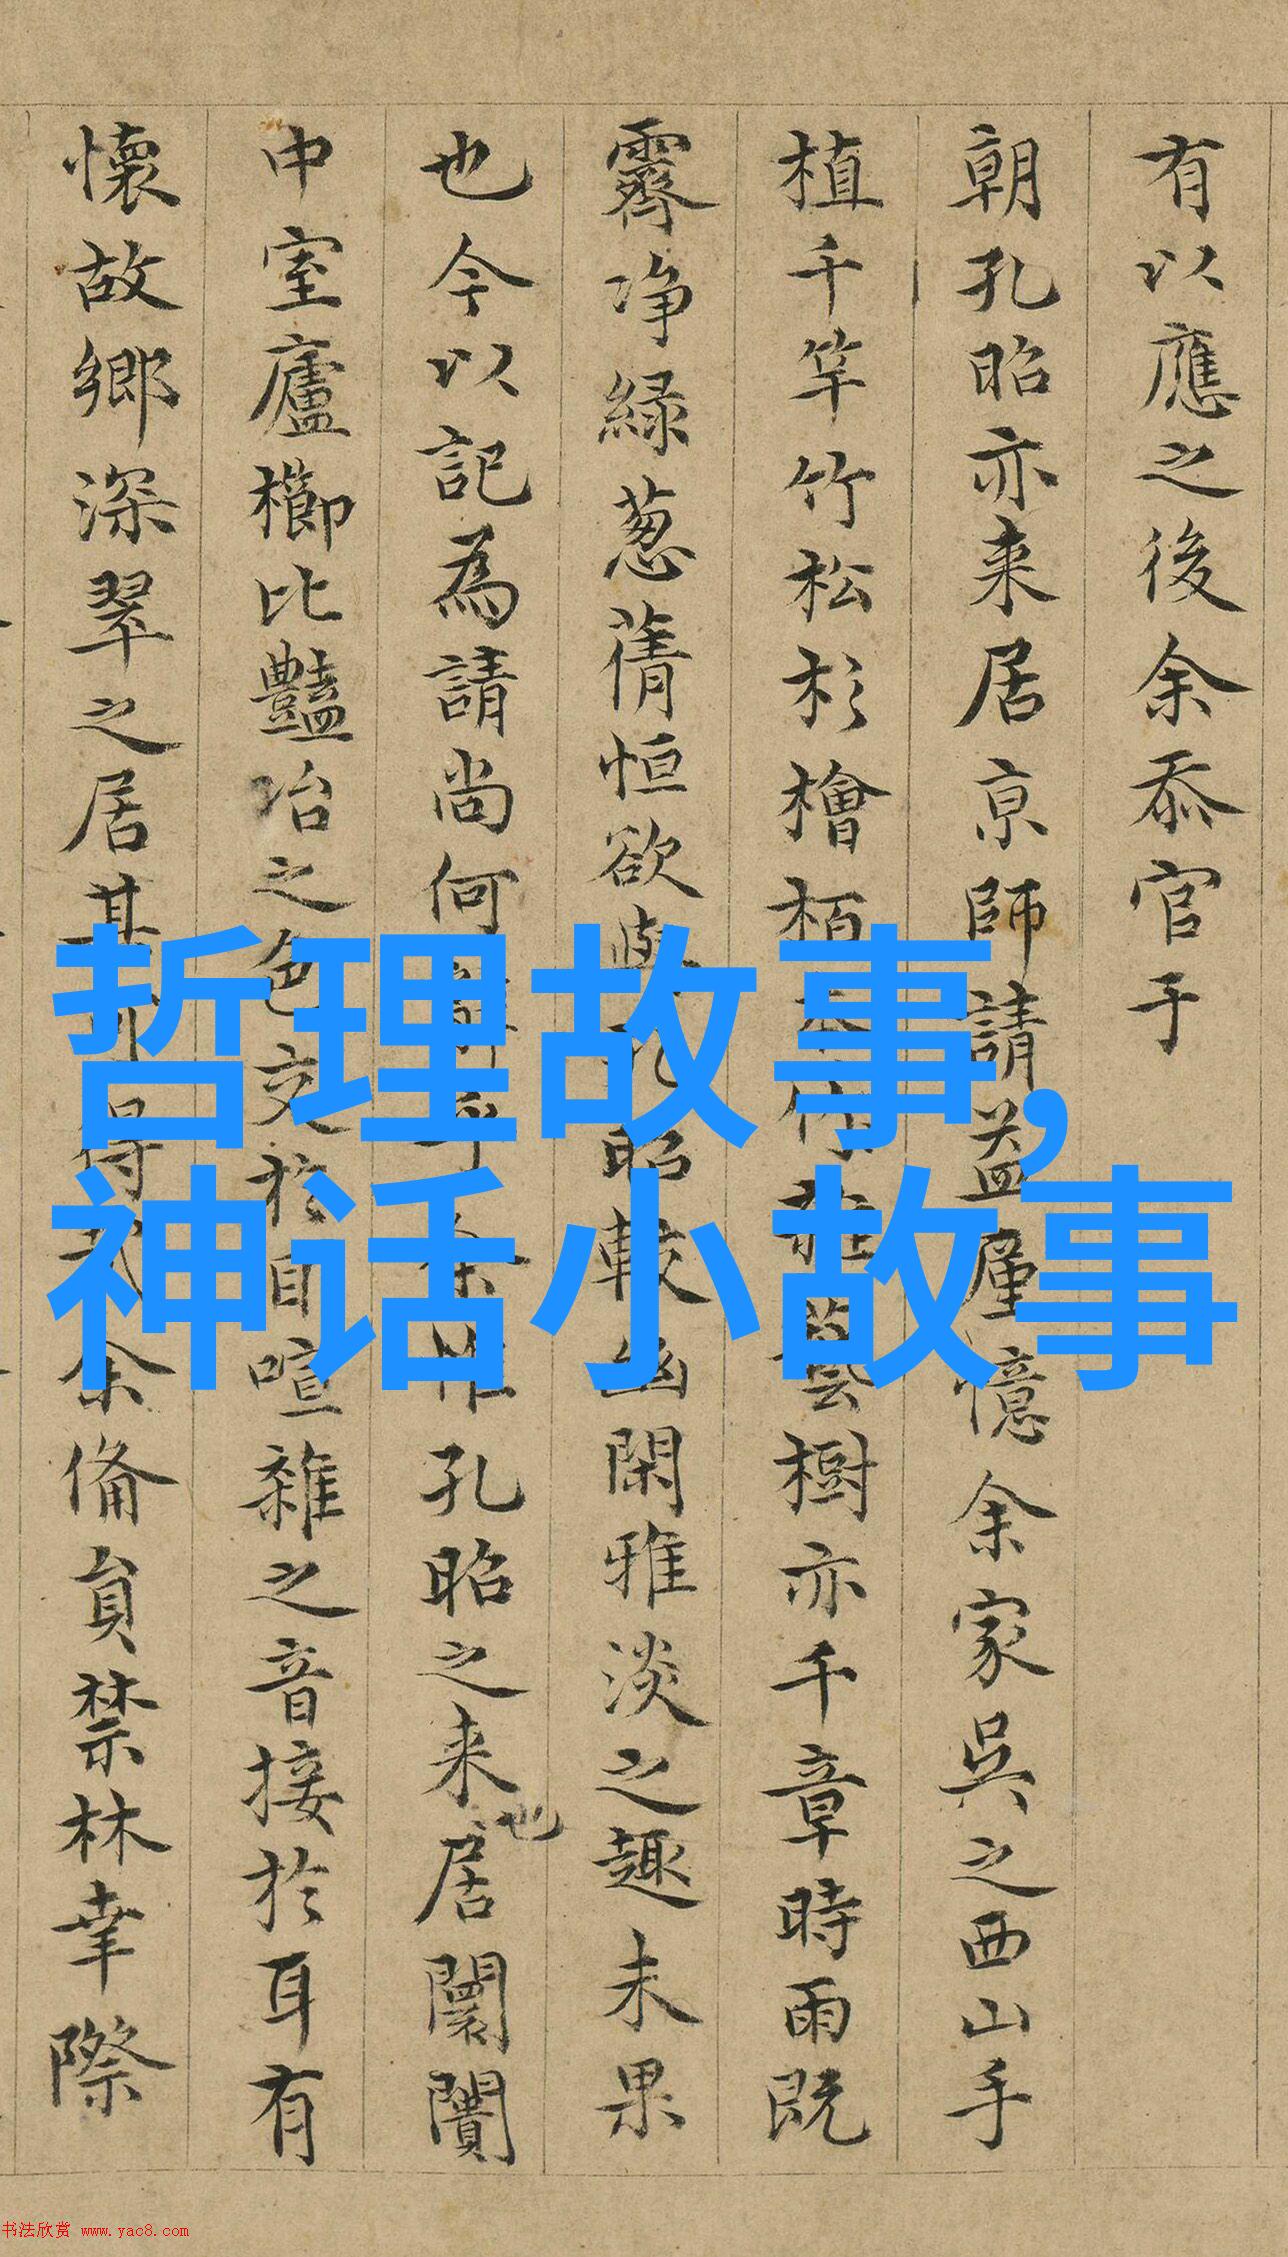 有以應之後余忝官于
朝孔昭亦来居京師請益屢憶余家吳之西山手
植千竿竹松杉檜栢樹亦千章時雨既
霽净緑葱蒨恒欲與孔昭較幽閑雅淡之趣未果
也今以記為請尚何孔昭之来居闤闠
也
中室廬櫛比豔冶之色交於目喧雜之音接於耳有
懷故鄉深翠之居其得余備員禁林幸際
哲理故事,
神话小故事
书法欣赏 www.yac8.com